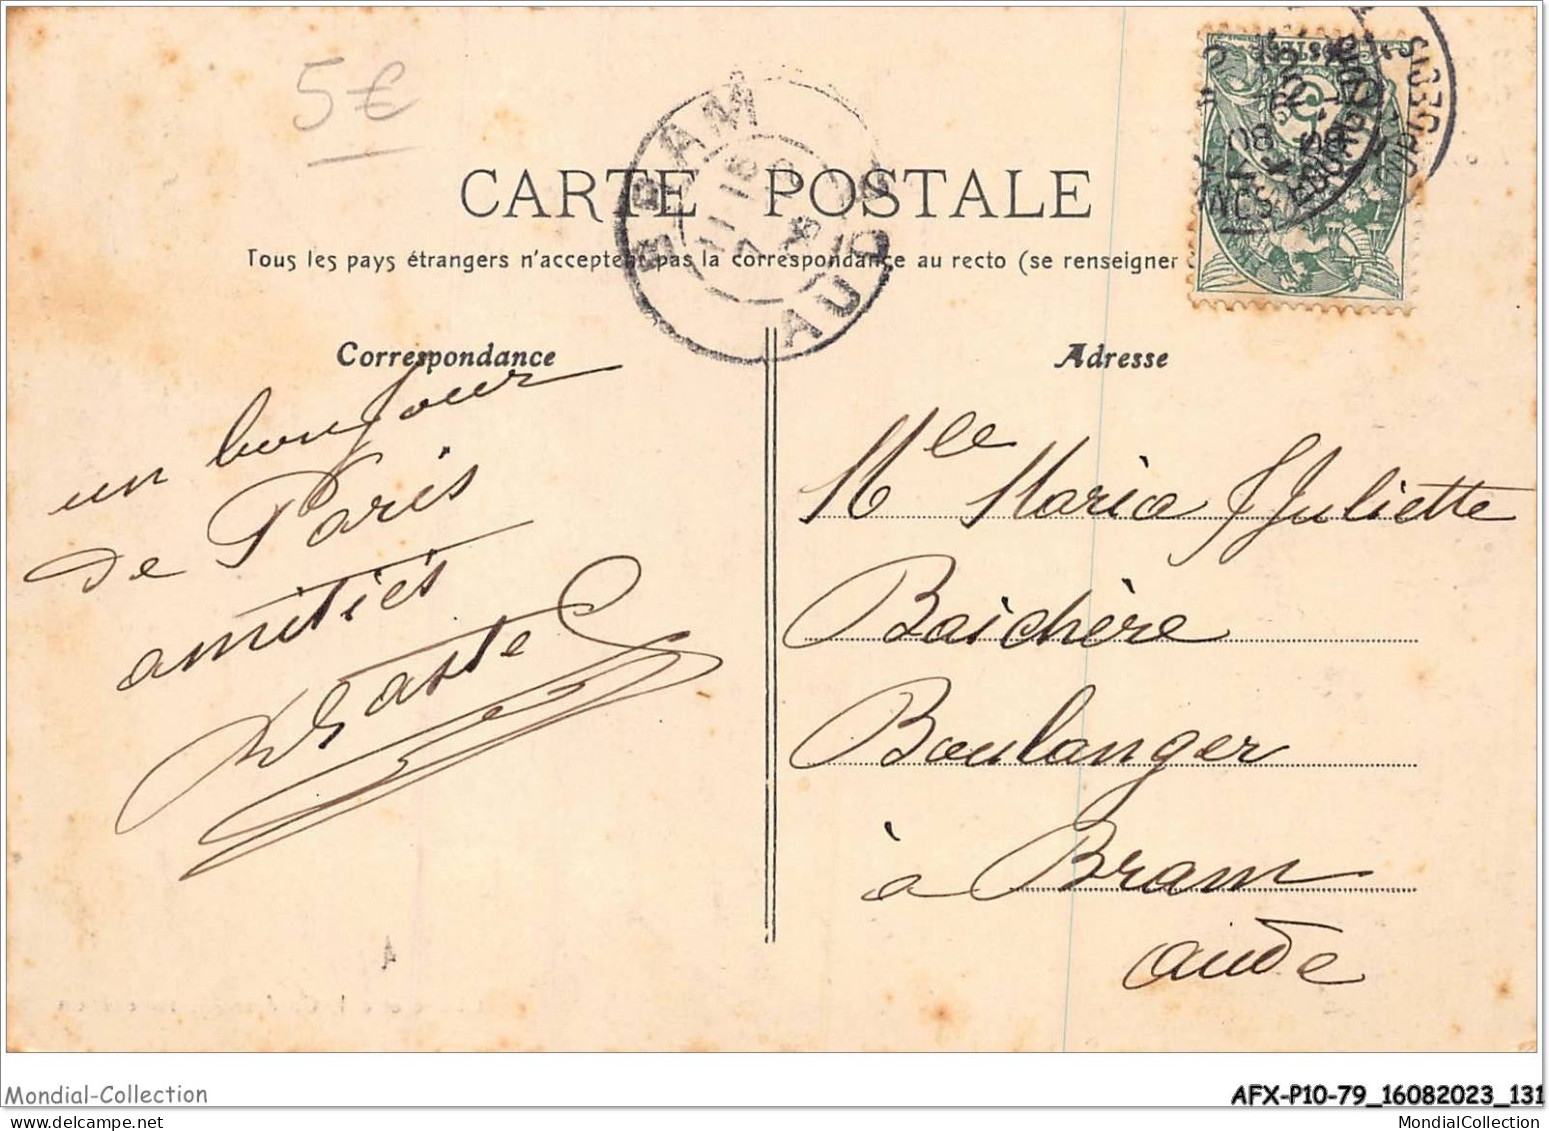 5€
CARTE POSTALE
Tous les pays étrangers n'acceptent pas la correspondance au recto (se renseigner
BRAM
AUDE
Correspondance
Adresse
un bonjour
de Paris
amitiés
Mlle Maria Juliette
Baichère
Boulanger
à Bram
aude
Mondial-Collection
AFX-P10-79_16082023_131
MondialCollection